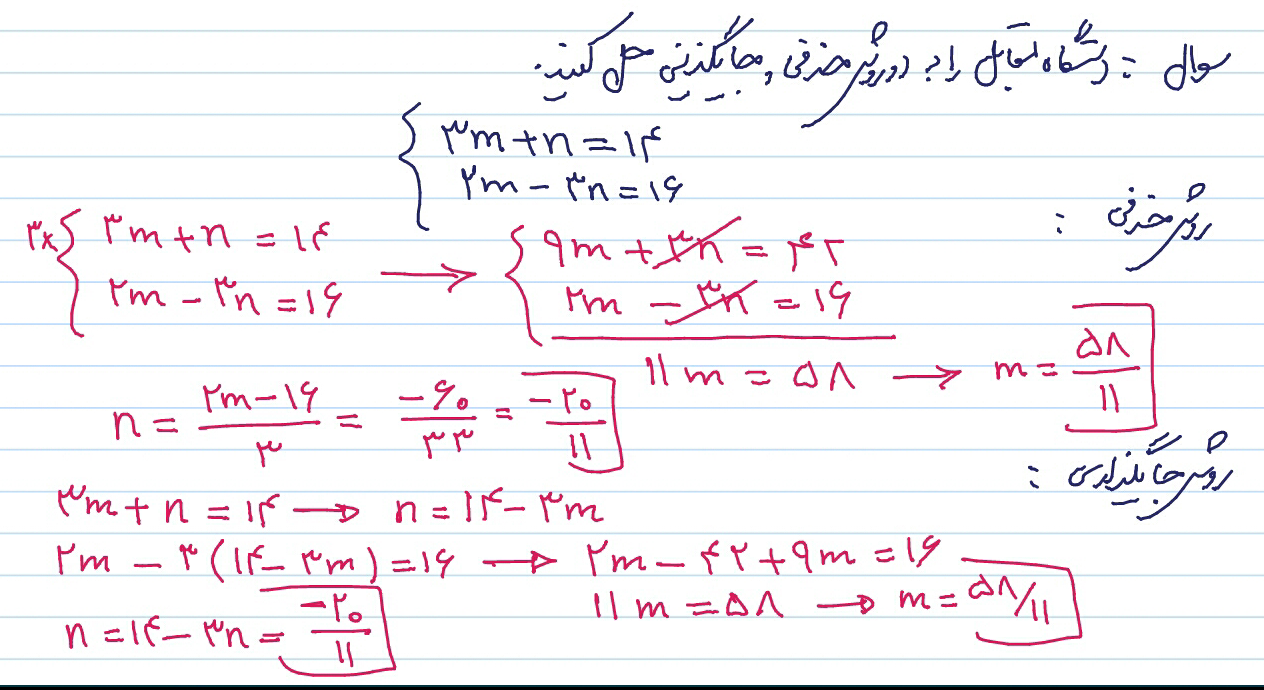 سوال : دستگاه مقابل را به دو روش حذفی و جایگزینی حل کنید.
۳m + n = ۱۴
۲m - ۳n = ۱۶
روش حذفی :
۳× ۳m + n = ۱۴ → ۹m + ۳n = ۴۲
۲m - ۳n = ۱۶ ۲m - ۳n = ۱۶
۱۱m = ۵۸ → m = ۵۸/۱۱
n = (۲m - ۱۶)/۳ = -۶۰/۳۳ = -۲۰/۱۱
روش جایگذاری :
۳m + n = ۱۴ → n = ۱۴ - ۳m
۲m - ۳(۱۴ - ۳m) = ۱۶ → ۲m - ۴۲ + ۹m = ۱۶
۱۱m = ۵۸ → m = ۵۸/۱۱
n = ۱۴ - ۳n = -۲۰/۱۱